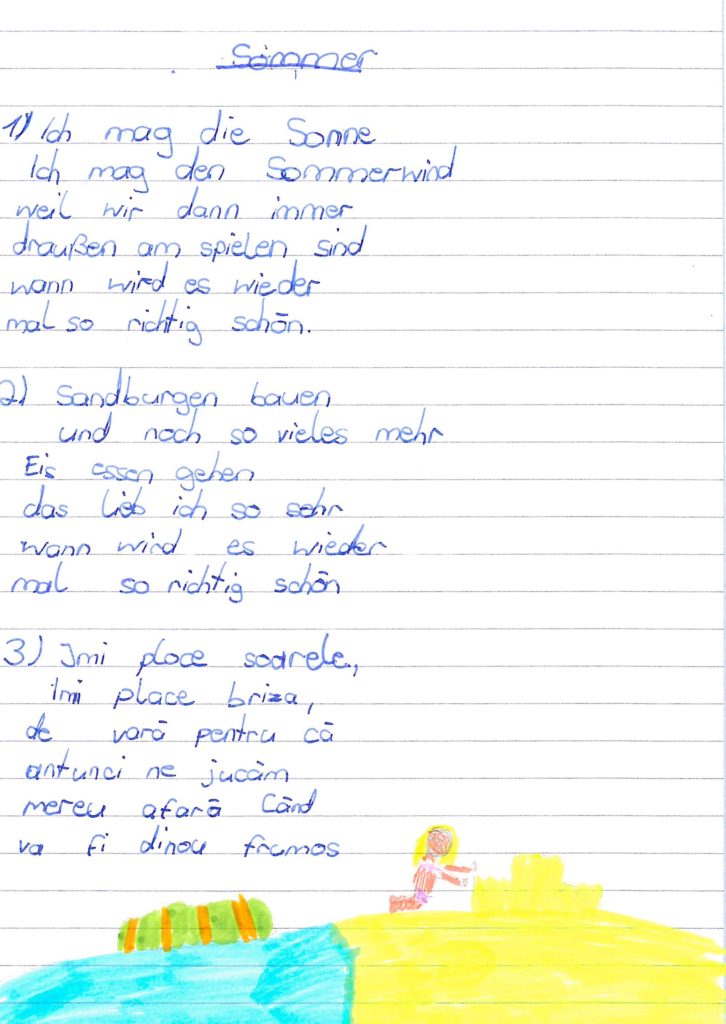 Sommer
1) Ich mag die Sonne
Ich mag den Sommerwind
weil wir dann immer
draußen am spielen sind
wann wird es wieder
mal so richtig schön.
2) Sandburgen bauen
und noch so vieles mehr
Eis essen gehen
das lieb ich so sehr
wann wird es wieder
mal so richtig schön
3) Imi place soarele,
Imi place briza,
de vară pentru că
antunci ne jucăm
mereu afară Când
va fi dinou frumos